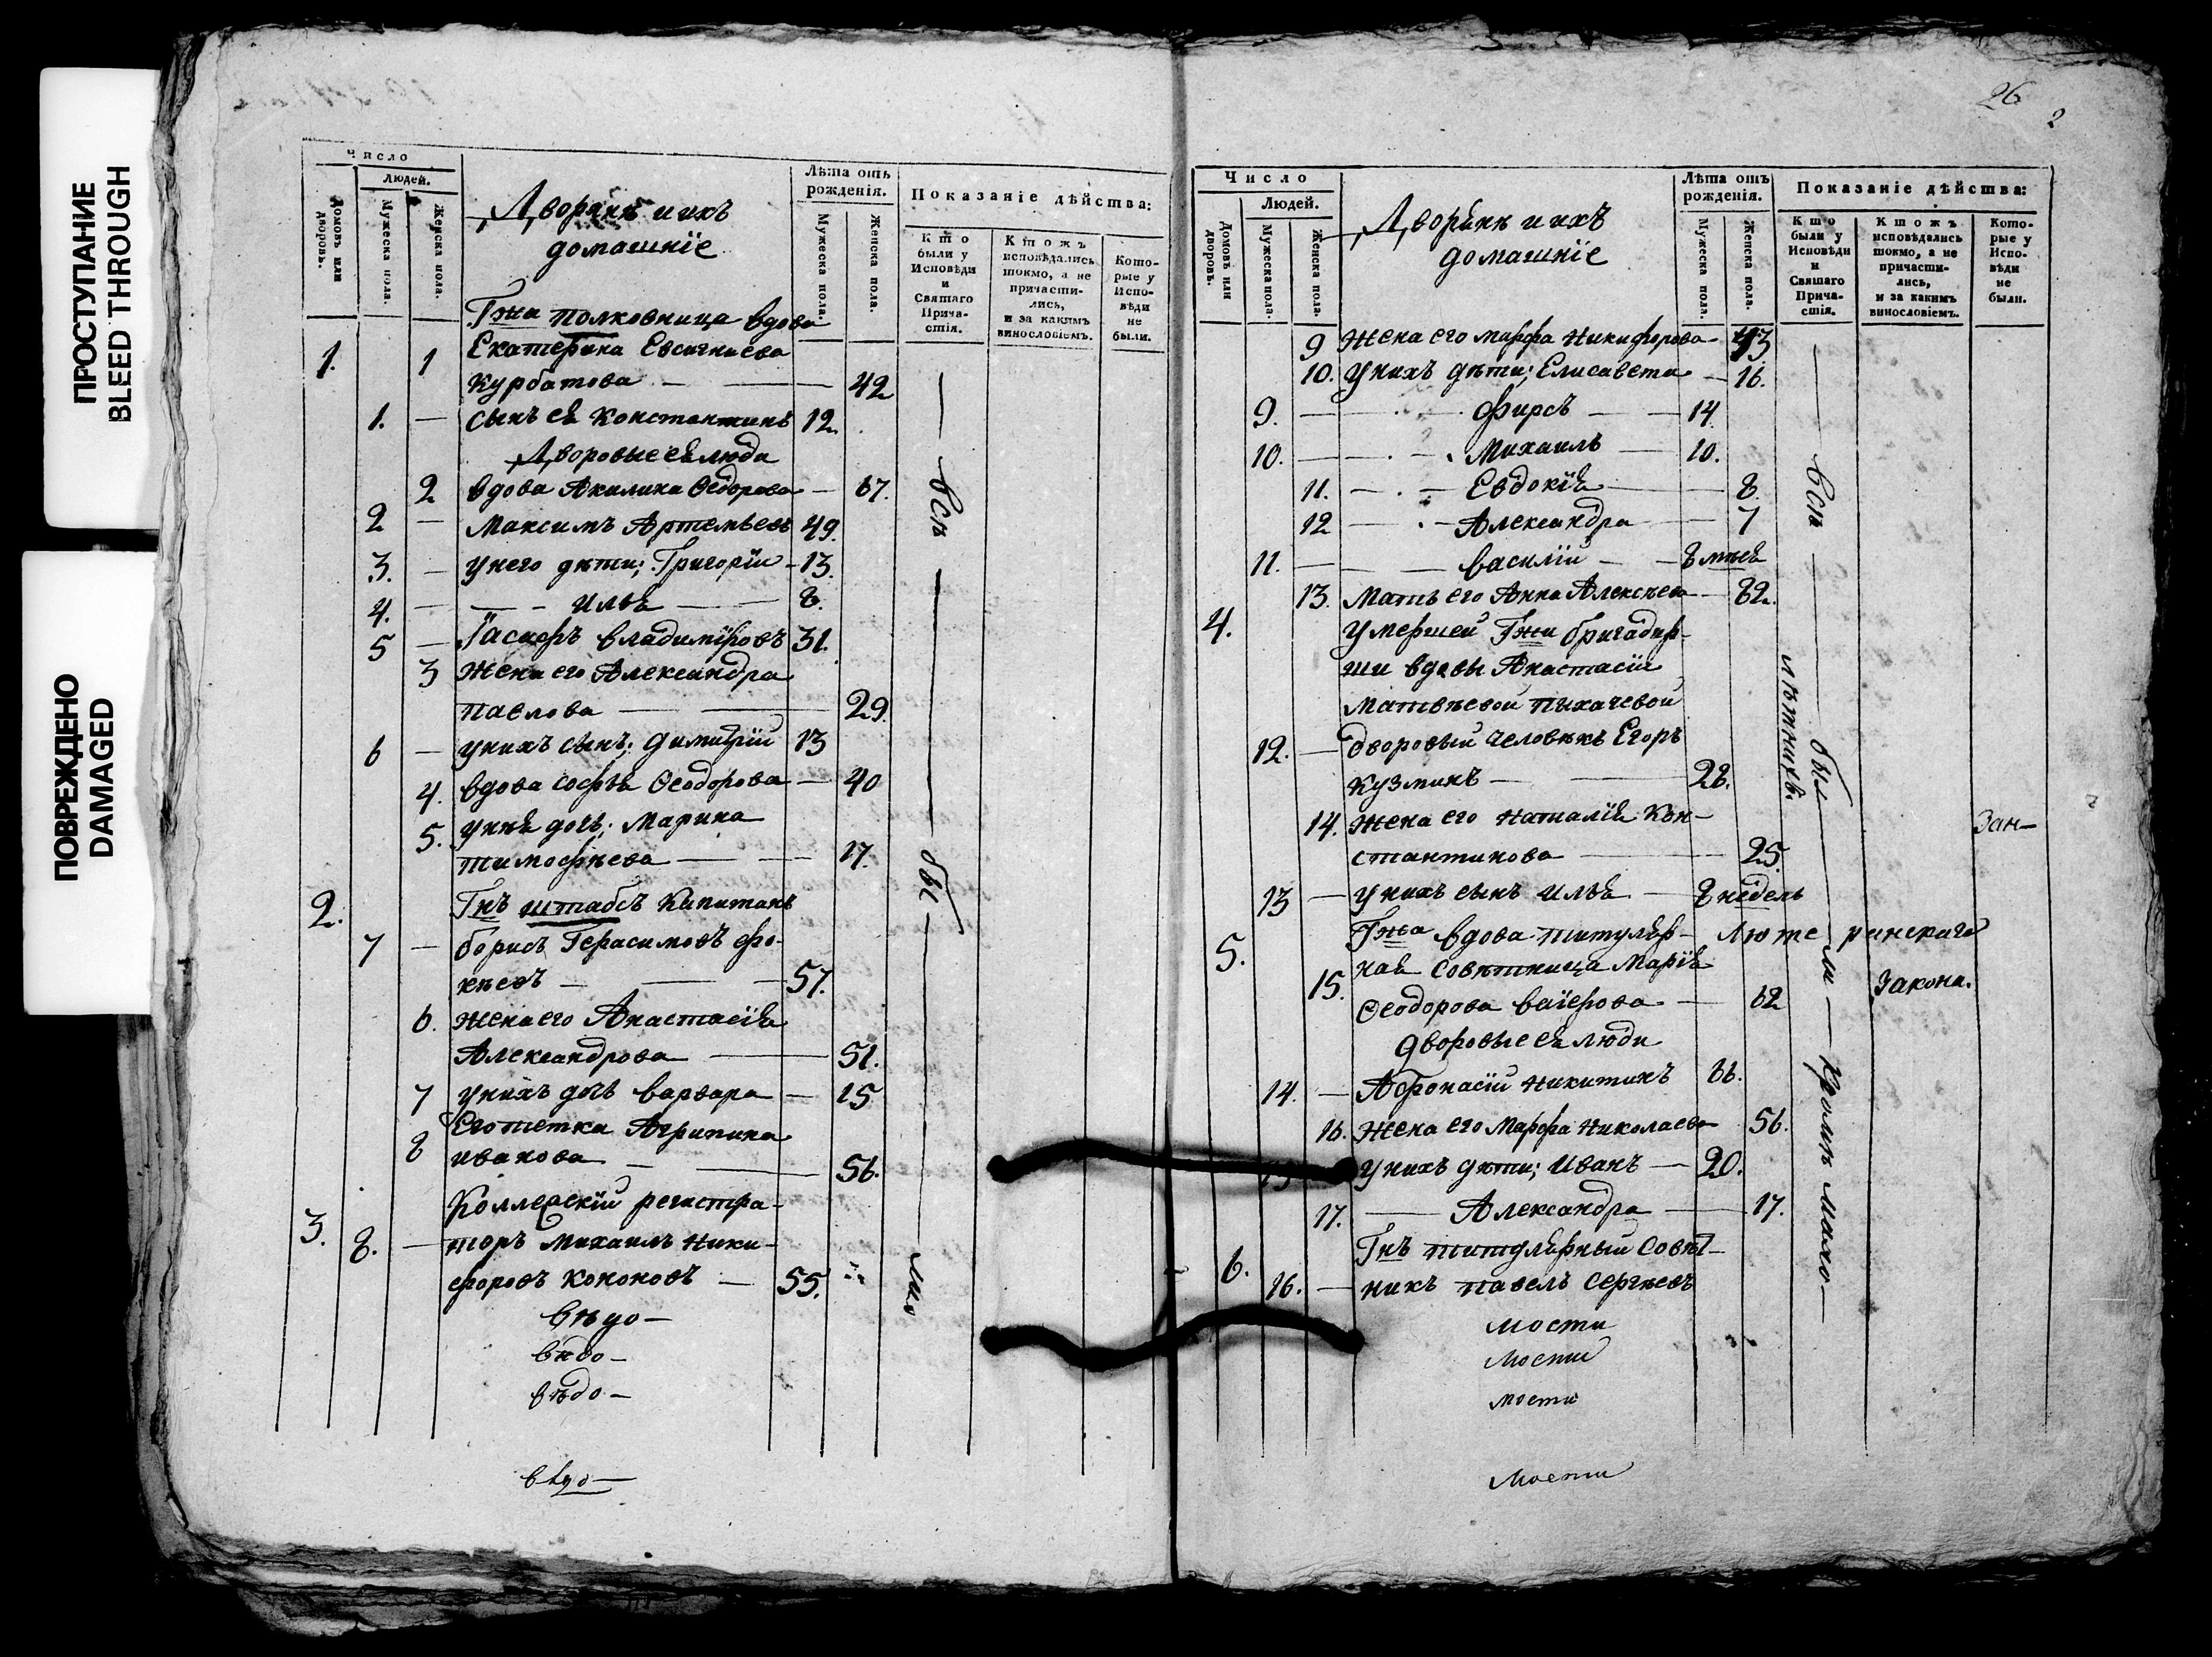 ПРОСТУПАНИЕ
BLEED THROUGH
ПОВРЕЖДЕНО
DAMAGED
Число
Людей.
Домовъ или дворовъ.
Мужеска пола.
Женска пола.
Дворянѣ и ихъ
домашнїе
Лѣта отъ рожденія.
Мужеска пола.
Женска пола.
Показаніе дѣйства:
Кто были у Исповѣди и Святаго Причастія.
Ктожъ исповѣдались токмо, а не причастились, и за какимъ винословіемъ.
Которые у Исповѣди не были.
Гжи полковница вдова
1. 1 Екатерина Евсигниева
Курбатова — 42
1. — сынъ ея Константинъ 12.
Дворовые ея люди
2 вдова Акилина Ѳедорова — 67.
2 — Максимъ Артемьевъ 49.
3. — У него дѣти; Григорїи — 13.
4. — Илья — 8.
5 — Гасиѳъ Владимїровъ 31.
3 Жена его Александра
Павлова — 29.
6 — У нихъ сынъ; Димитрїй 13
4. Вдова Софья Ѳеодорова — 40
5. У нея дочь; Марина
Тимофѣева — 17.
2. Гнъ штабсъ Капитанъ
7 — Борисъ Герасимовъ Фо-
кѣевъ — 57.
6. Жена его Анастасїя
Александрова — 51.
7 У нихъ дочь Варвара — 15
8 Его тетка Агрипина
Иванова — 56.
3. Коллежскїй регистра-
8. — торъ Михаилъ Ники-
форовъ Кононовъ — 55.
всѣ — бы — ли
вѣдо-
вѣдо-
вѣдо-
вѣдо—
26
2
Число
Людей.
Домовъ или дворовъ.
Мужеска пола.
Женска пола.
Дворянѣ и ихъ
домашнїе
Лѣта отъ рожденія.
Мужеска пола.
Женска пола.
Показаніе дѣйства:
Кто были у Исповѣди и Святаго Причастія.
Ктожъ исповѣдались токмо, а не причастились, и за какимъ винословіемъ.
Которые у Исповѣди не были.
9 Жена его Марфа Никифорова — 43
10. У нихъ дѣти; Елисавета — 16.
9. — Фирсъ — 14
10. — Михаилъ — 10.
11. — Евдокїя — 8.
12 — Александра — 7
11. — Василїй — 8 мѣся
13. Мать его Анна Алексѣева — 82.
4. Умершей Гжи бригадир-
ши вдовы Анастасїи
Матвѣевой Пыхачевой
12. — Дворовый человѣкъ Егоръ
Кузминъ — 28.
14. Жена его Наталїя Кон-
стантинова — 25.
13 — У нихъ сынъ Илья — 8 недель
5. Гжа вдова титуляр- Люте ранскаго
15. ная Совѣтница Марїя Закона.
Ѳеодорова Ваїерова — 62
Дворовые ея люди
14. — Афонасїй Никитинъ 66.
16. Жена его Марфа Николаева 56.
У нихъ дѣти; Иванъ — 20.
17. — Александра — 17.
6. Гнъ титулярный Совѣт-
16. — никъ Павелъ Сергѣевъ
всѣ — бы — ли — кромѣ мало —
лѣтнихъ.
Зан—
мости
мости
мости
мости